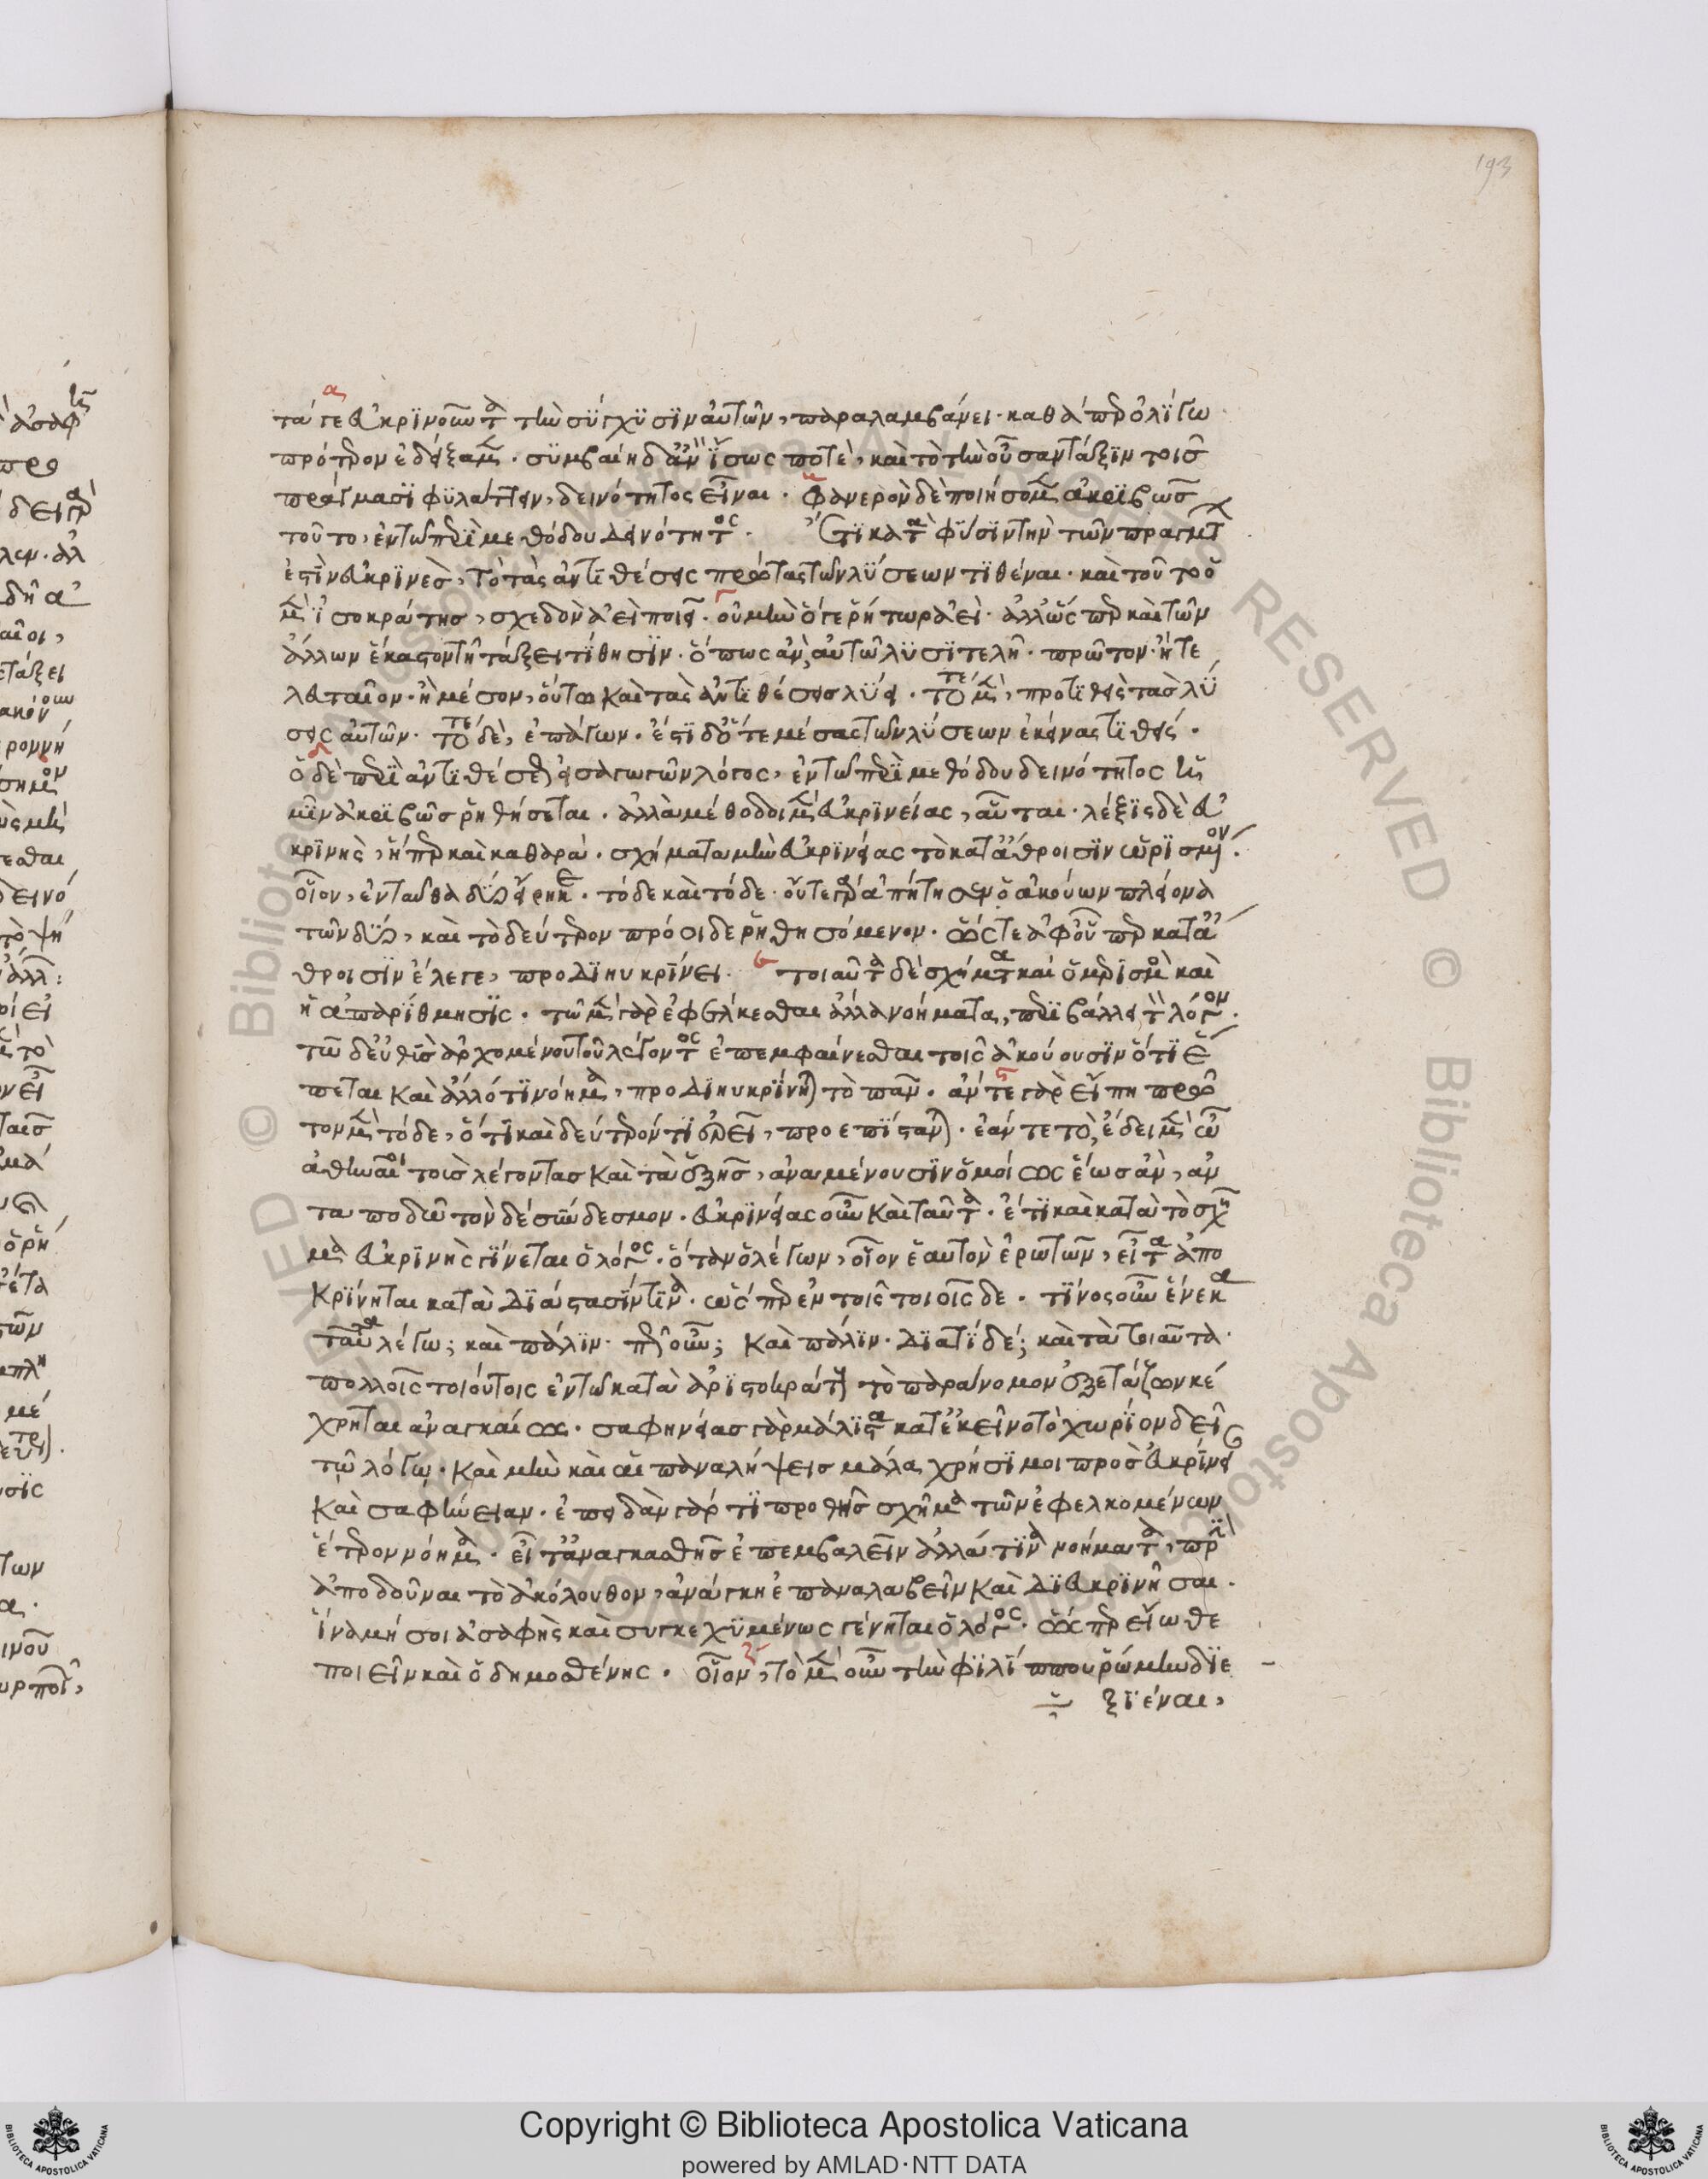 193
τά γε εὐκρινοῦντα τὴν σύγχυσιν αὐτῶν, παραλαμβάνει· καθάπερ ὀλίγω
πρότερον ἐδείξαμεν. συμβαίη δ' ἂν ἴσως ποτὲ, καὶ τὸ τὴν οὖσαν τάξιν τοῖς
πράγμασι φυλάττειν, δεινότητος εἶναι. φανερὸν δὲ ποιήσομεν ἀκριβῶς
τοῦτο, ἐν τῶ περὶ μεθόδου δεινότητος. Ἔτι κατὰ φύσιν τὴν τῶν πραγμάτ
ἐστὶν εὐκρινὲς, τὸ τὰς ἀντιθέσεις πρὸ τὰς τῶν λύσεων τιθέναι. καὶ τοῦτο ὁ
μὲν ἰσοκράτης, σχεδὸν ἀεὶ ποιεῖ. οὐ μὴν ὅ γε ῥήτωρ ἀεὶ. ἀλλ' ὥσπερ καὶ τῶν
ἄλλων ἕκαστον τῆ τάξει τίθησιν. ὅπως ἂν, αὐτῶ λυσιτελῆ. πρῶτον· ἢ τε
λευταῖον· ἢ μέσον, οὕτω καὶ τὰς ἀντιθέσεις λύει. τοτὲ μὲν, προτιθεὶς τὰς λύ
σεις αὐτῶν. τοτὲ δὲ, ἐπάγων. ἔστι δ' ὅτε μέσας τῶν λύσεων ἐκείνας τιθείς.
ὁ δὲ περὶ ἀντιθέσεων εἰσαγωγῶν λόγος, ἐν τῶ περὶ μεθόδου δεινότητος ἡ
μῖν ἀκριβῶς ῥηθήσεται. ἀλλὰ μέθοδοι μὲν εὐκρινείας, αὗται. λέξις δὲ εὐ
κρινὴς, ἥπερ καὶ καθαρά. σχήματα μὴν εὐκρινείας τὸ κατ' ἄθροισιν ὡρισμένον.
οἷον, ἐνταῦθα δύο εἴρηκε. τόδε καὶ τόδε. οὔτε γὰρ ἀπήτησεν ὁ ἀκούων πλείονα
τῶν δύο, καὶ τὸ δεύτερον πρόσιδε ῥηθησόμενον. ὥστε ἀφ' οὗπερ κατ' ἄ
θροισιν ἔλεγε, προδιηυκρίνει. τοιαῦτα δὲ σχήματα καὶ ὁ μερισμὸς καὶ
ἡ ἀπαρίθμησις. τῶ μὲν γὰρ ἐφέλκεσθαι ἄλλα νοήματα, περιβάλλει τὸν λόγον.
τῶ δ' εὐθὺς ἀρχομένου τοῦ λέγοντος ἐπεμφαίνεσθαι τοῖς ἀκούουσιν ὅτι ἕ
πεται καὶ ἄλλό τι νόημα, προδιηυκρίνηται τὸ πᾶν. ἄν τε γὰρ εἴπη πρῶ
τον μὲν τόδε, ὅτι καὶ δεύτερόν τι ἐρεῖ, προεπίσταται. ἐάν τε τὸ, ἔδει μὲν ὦ
ἀθηναῖοι τοὺς λέγοντας καὶ τὰ ἑξῆς, ἀναμένουσιν ὁμοίως ἕως ἂν, ἀν
ταποδῶ τὸν δέ σύνδεσμον. εὐκρινείας οὖν καὶ ταῦτα. ἔτι καὶ κατὰ τὸ σχῆ
μα εὐκρινὴς γίνεται ὁ λόγος. ὅταν ὁ λέγων, οἷον ἑαυτὸν ἐρωτῶν, εἶτα ἀπο
κρίνηται κατὰ διάστασίν τινα. ὥσπερ ἐν τοῖς τοιοῖσδε. τίνος οὖν ἕνεκα
ταῦτα λέγω; καὶ πάλιν· πῶς οὖν; καὶ πάλιν. διατί δέ; καὶ τὰ τοιαῦτα.
πολλοῖς τοιούτοις ἐν τῶ κατὰ ἀριστοκράτους τὸ παράνομον ἐξετάζων κέ
χρηται ἀναγκαίως. σαφηνείας γὰρ μάλιστα κατ' ἐκεῖνο τὸ χωρίον δεῖ
τῶ λόγω. καὶ μὴν καὶ αἱ ἐπαναλήψεις μάλα χρήσιμοι πρὸς εὐκρίνει
καὶ σαφήνειαν. ἐπειδὰν γάρ τι προθῆς σχῆμα τῶν ἐφελκομένων
ἕτερον νόημα. εἶτ' ἀναγκασθῆς ἐπεμβαλεῖν ἀλλά τινα νοήματα, πρὶν
ἀποδοῦναι τὸ ἀκόλουθον, ἀνάγκη ἐπαναλαβεῖν καὶ διευκρινῆσαι.
ἵνα μή σοι ἀσαφὴς καὶ συγκεχυμένως γένηται ὁ λόγος. ὥσπερ εἴωθε
ποιεῖν καὶ ὁ δημοσθένης. οἷον, τὸ μὲν οὖν τὴν φιλίππου ῥώμην διε
ξιέναι,
Copyright © Biblioteca Apostolica Vaticana
powered by AMLAD·NTT DATA